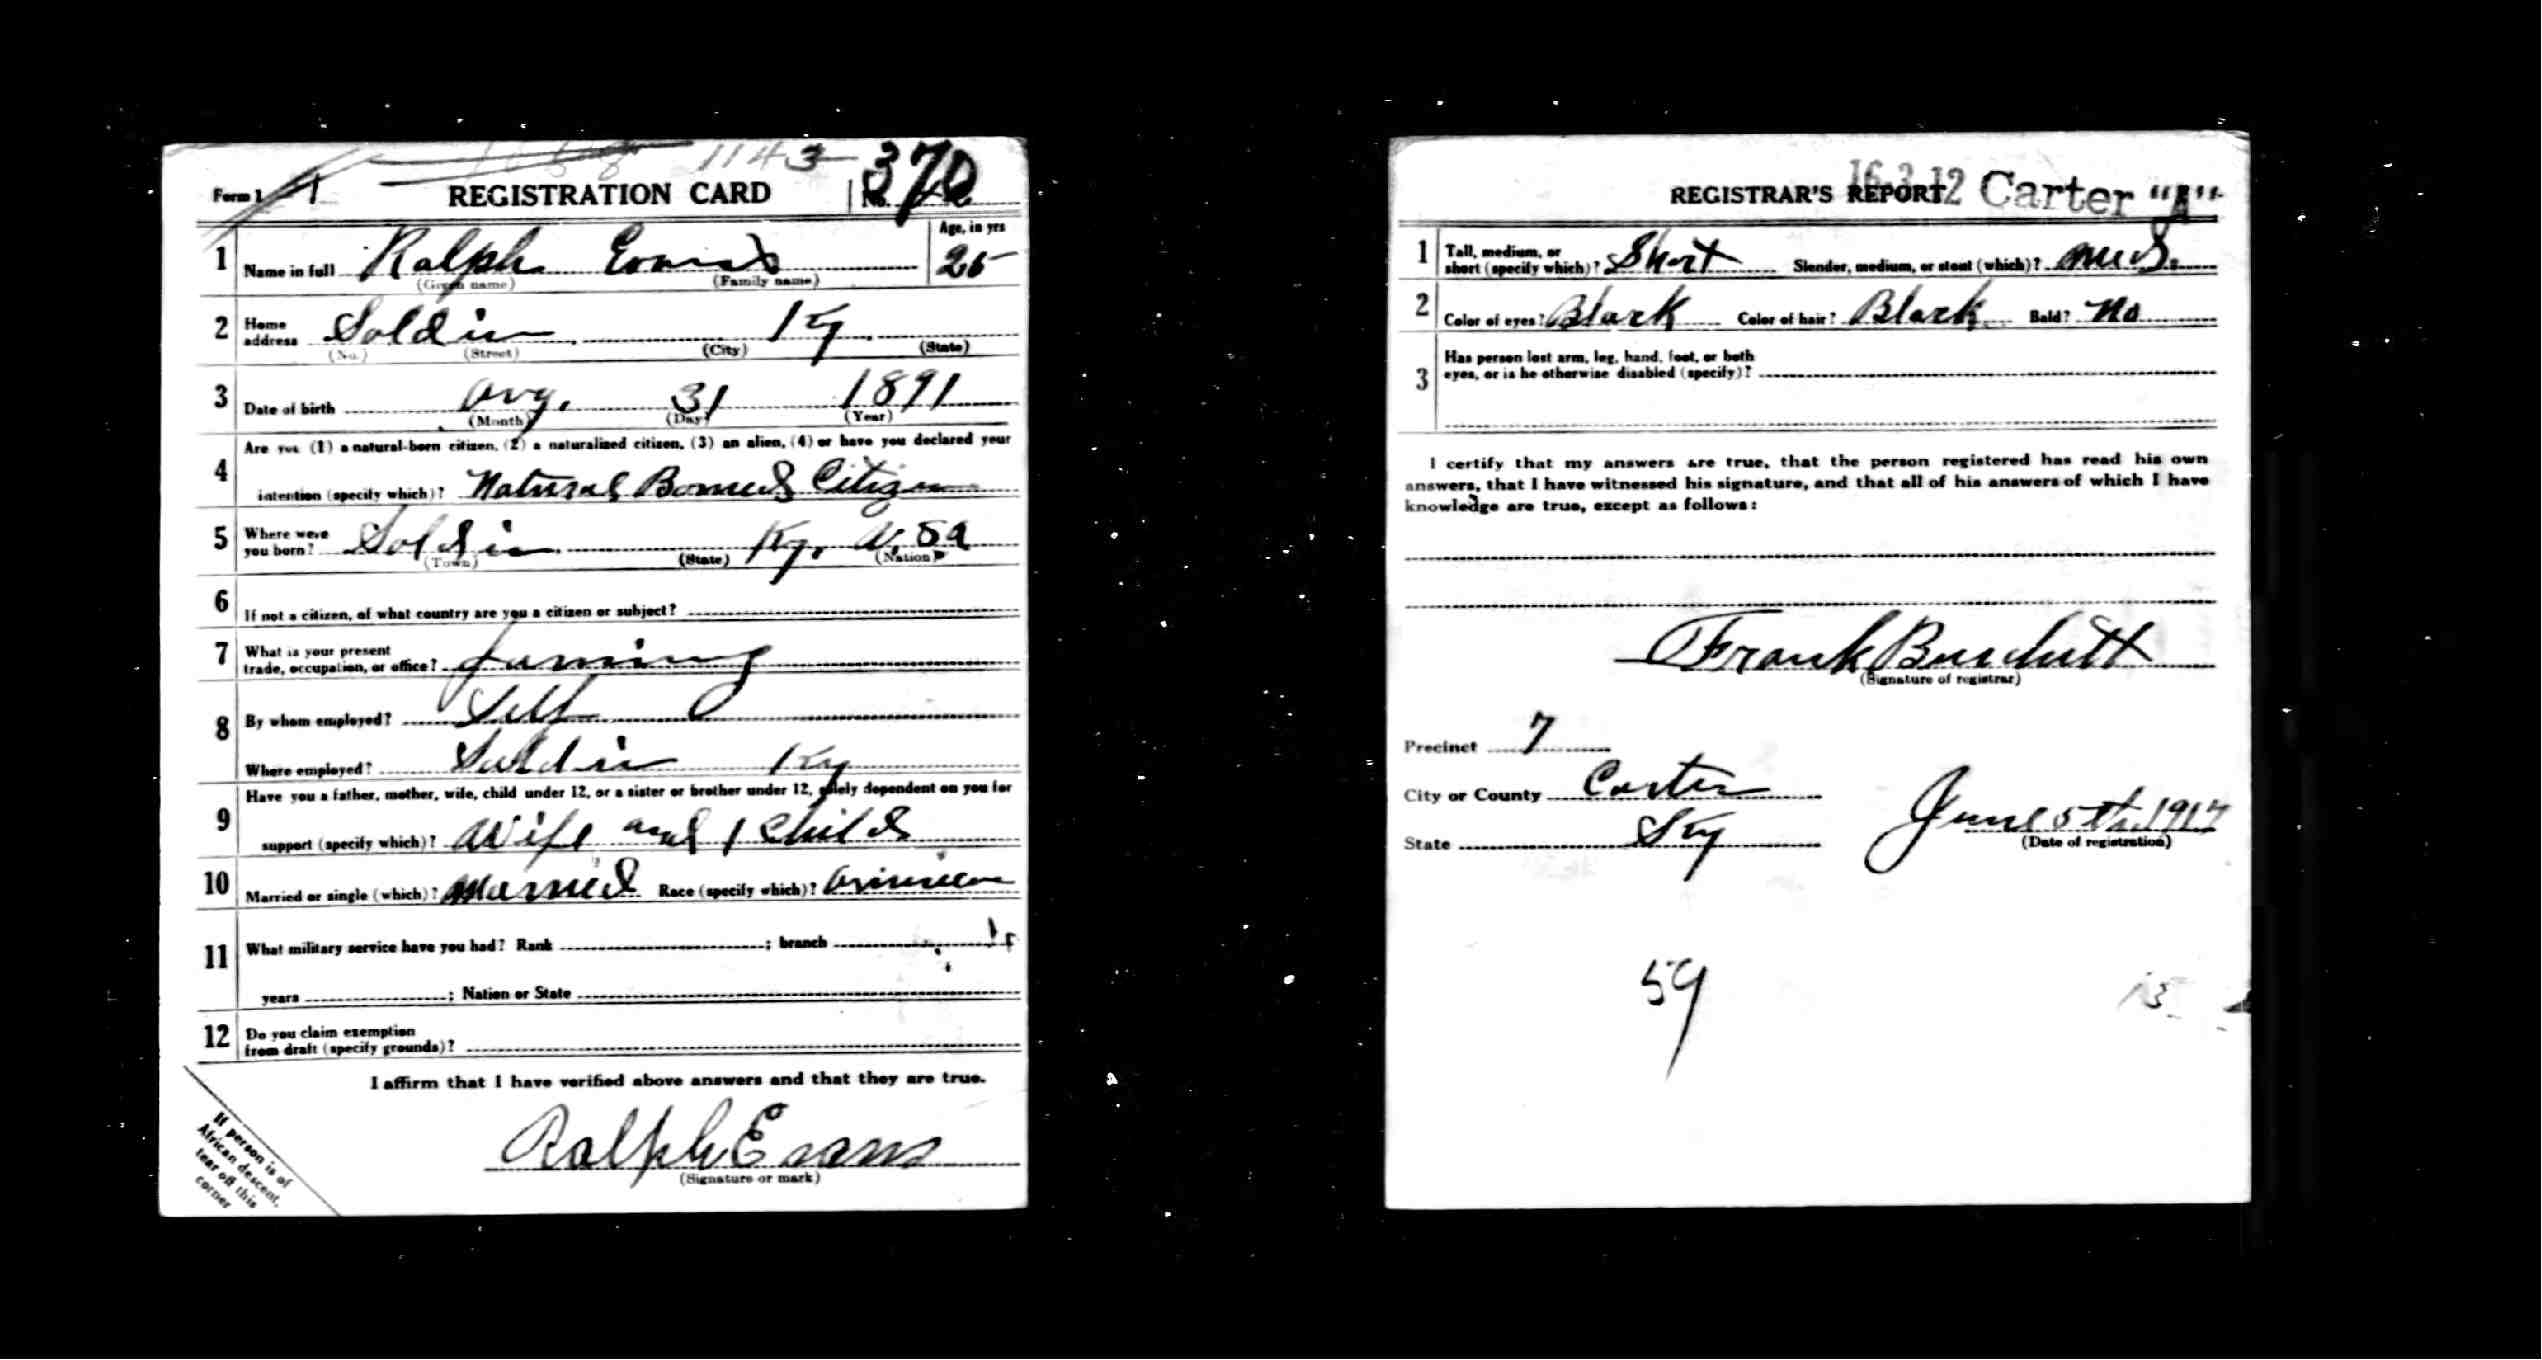 1143
Form 1 REGISTRATION CARD No. 370
1 Name in full Ralph Evans Age, in yrs 25
(Given name) (Family name)
2 Home address Soldier Ky.
(No.) (Street) (City) (State)
3 Date of birth Aug. 31 1891
(Month) (Day) (Year)
4 Are you (1) a natural-born citizen, (2) a naturalized citizen, (3) an alien, (4) or have you declared your
intention (specify which)? Natural Borned Citizen
5 Where were you born? Soldier Ky. U.S.A
(Town) (State) (Nation)
6 If not a citizen, of what country are you a citizen or subject?
7 What is your present
trade, occupation, or office? farming
8 By whom employed? Self
Where employed? Soldier Ky
9 Have you a father, mother, wife, child under 12, or a sister or brother under 12, solely dependent on you for
support (specify which)? Wife and 1 Child
10 Married or single (which)? Married Race (specify which)? American
11 What military service have you had? Rank ; branch
years ; Nation or State
12 Do you claim exemption
from draft (specify grounds)?
I affirm that I have verified above answers and that they are true.
Ralph Evans
(Signature or mark)
If person is of
African descent,
tear off this
corner
REGISTRAR'S REPORT 16-3-12 Carter "A"
1 Tall, medium, or
short (specify which)? Short Slender, medium, or stout (which)? Med.
2 Color of eyes? Black Color of hair? Black Bald? No
3 Has person lost arm, leg, hand, foot, or both
eyes, or is he otherwise disabled (specify)?
I certify that my answers are true, that the person registered has read his own
answers, that I have witnessed his signature, and that all of his answers of which I have
knowledge are true, except as follows:
Frank Burchett
(Signature of registrar)
Precinct 7
City or County Carter
State Ky
June 5th 1917
(Date of registration)
59